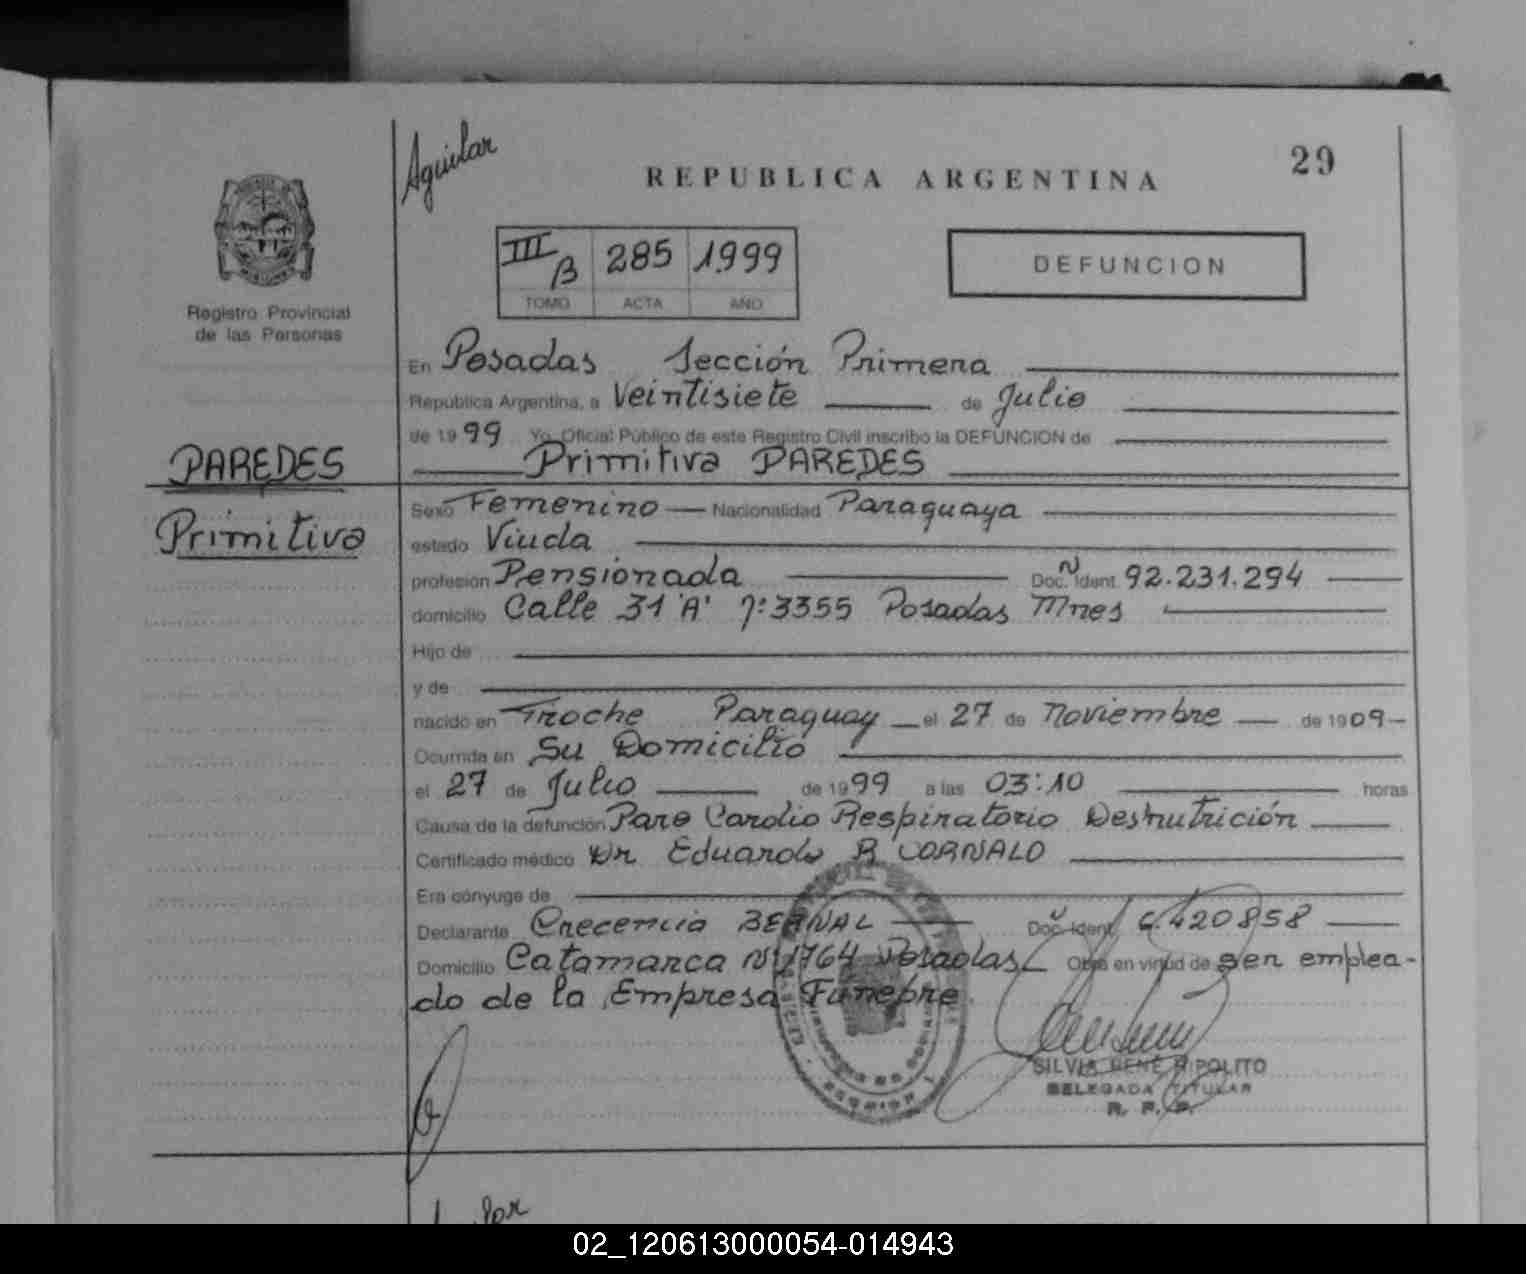 Aguilar
REPUBLICA ARGENTINA
29
Registro Provincial
de las Personas
III B 285 1999
TOMO ACTA AÑO
DEFUNCION
En Posadas Sección Primera
Republica Argentina, a Veintisiete de Julio
de 1999 Yo, Oficial Público de este Registro Civil inscribo la DEFUNCION de
Primitiva PAREDES
PAREDES
Primitiva
Sexo Femenino Nacionalidad Paraguaya
estado Viuda
profesion Pensionada Doc. Ident. Nº 92.231.294
domicilio Calle 31 'A' nº 3355 Posadas Mnes
Hijo de
y de
nacido en Troche Paraguay el 27 de Noviembre de 1909
Ocurrida en Su Domicilio
el 27 de Julio de 1999 a las 03:10 horas
Causa de la defunción Paro Cardio Respiratorio Desnutrición
Certificado médico Dr Eduardo R CORNALO
Era cónyuge de
Declarante Crecencio BERNAL Doc. Ident. 6.420858
Domicilio Catamarca Nº 1764 Posadas Obra en virtud de ser emplea-
do de la Empresa Funebre.
SILVIA RENÉ HIPOLITO
DELEGADA TITULAR
R. P. P.
02_120613000054-014943